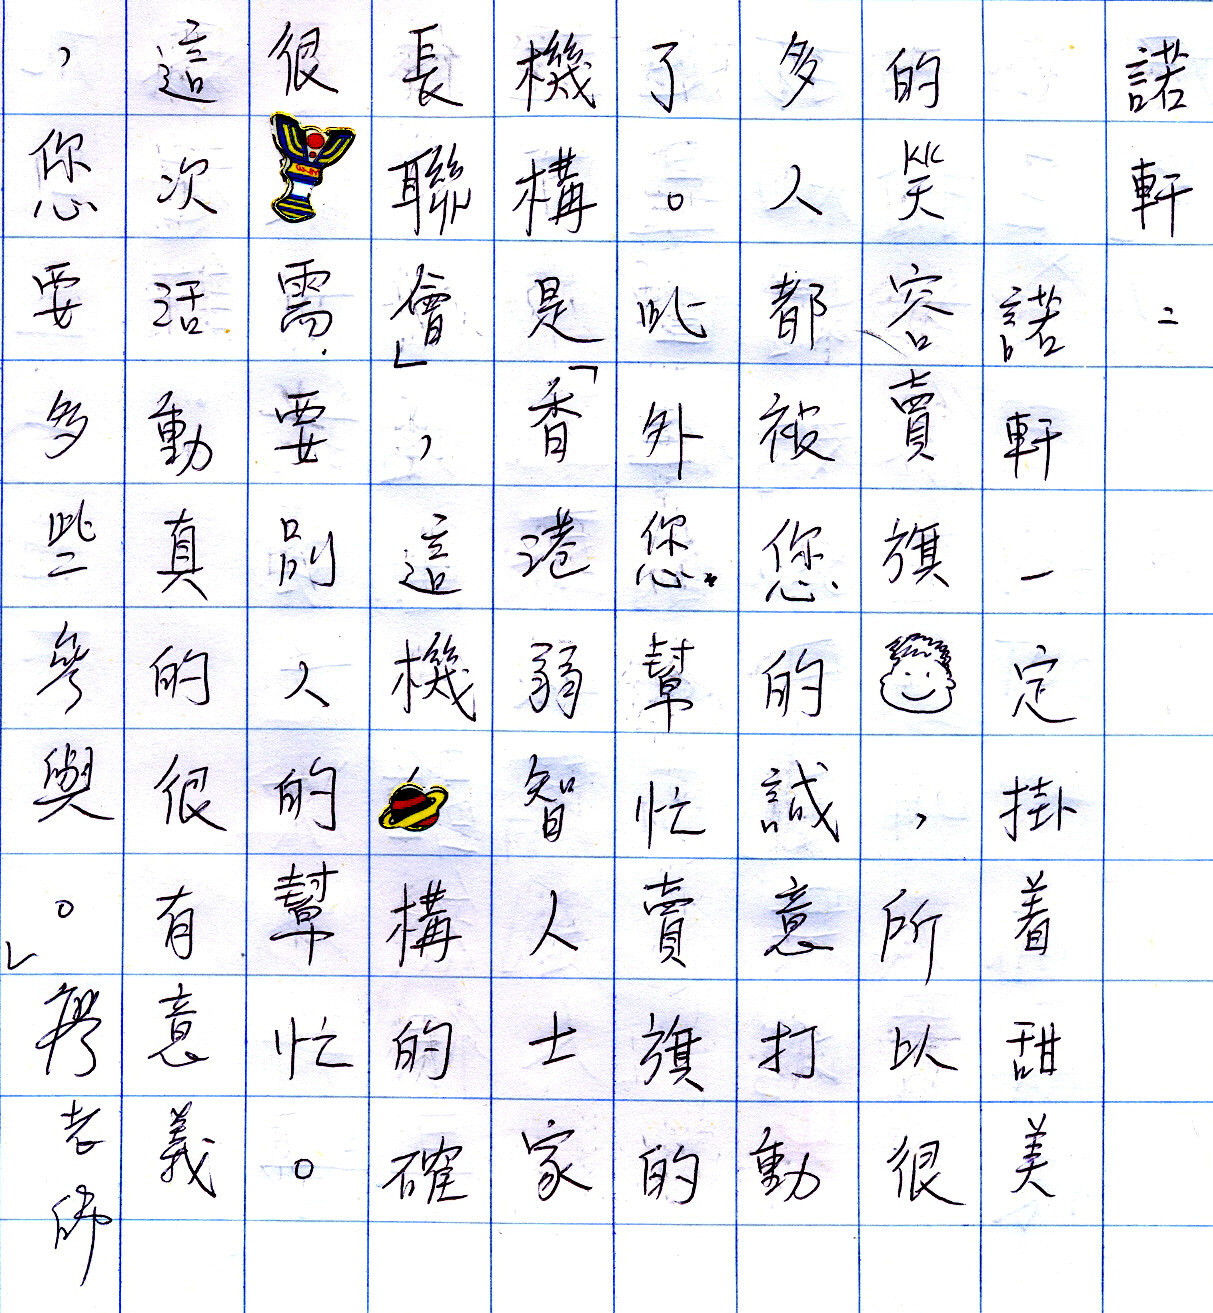 諾軒：
諾軒一定掛着甜美
的笑容賣旗，所以很
多人都被您的誠意打動
了。此外您幫忙賣旗的
機構是「香港弱智人士家
長聯會」，這機構的確
很需要別人的幫忙。
這次活動真的很有意義
，您要多些參與。」老師